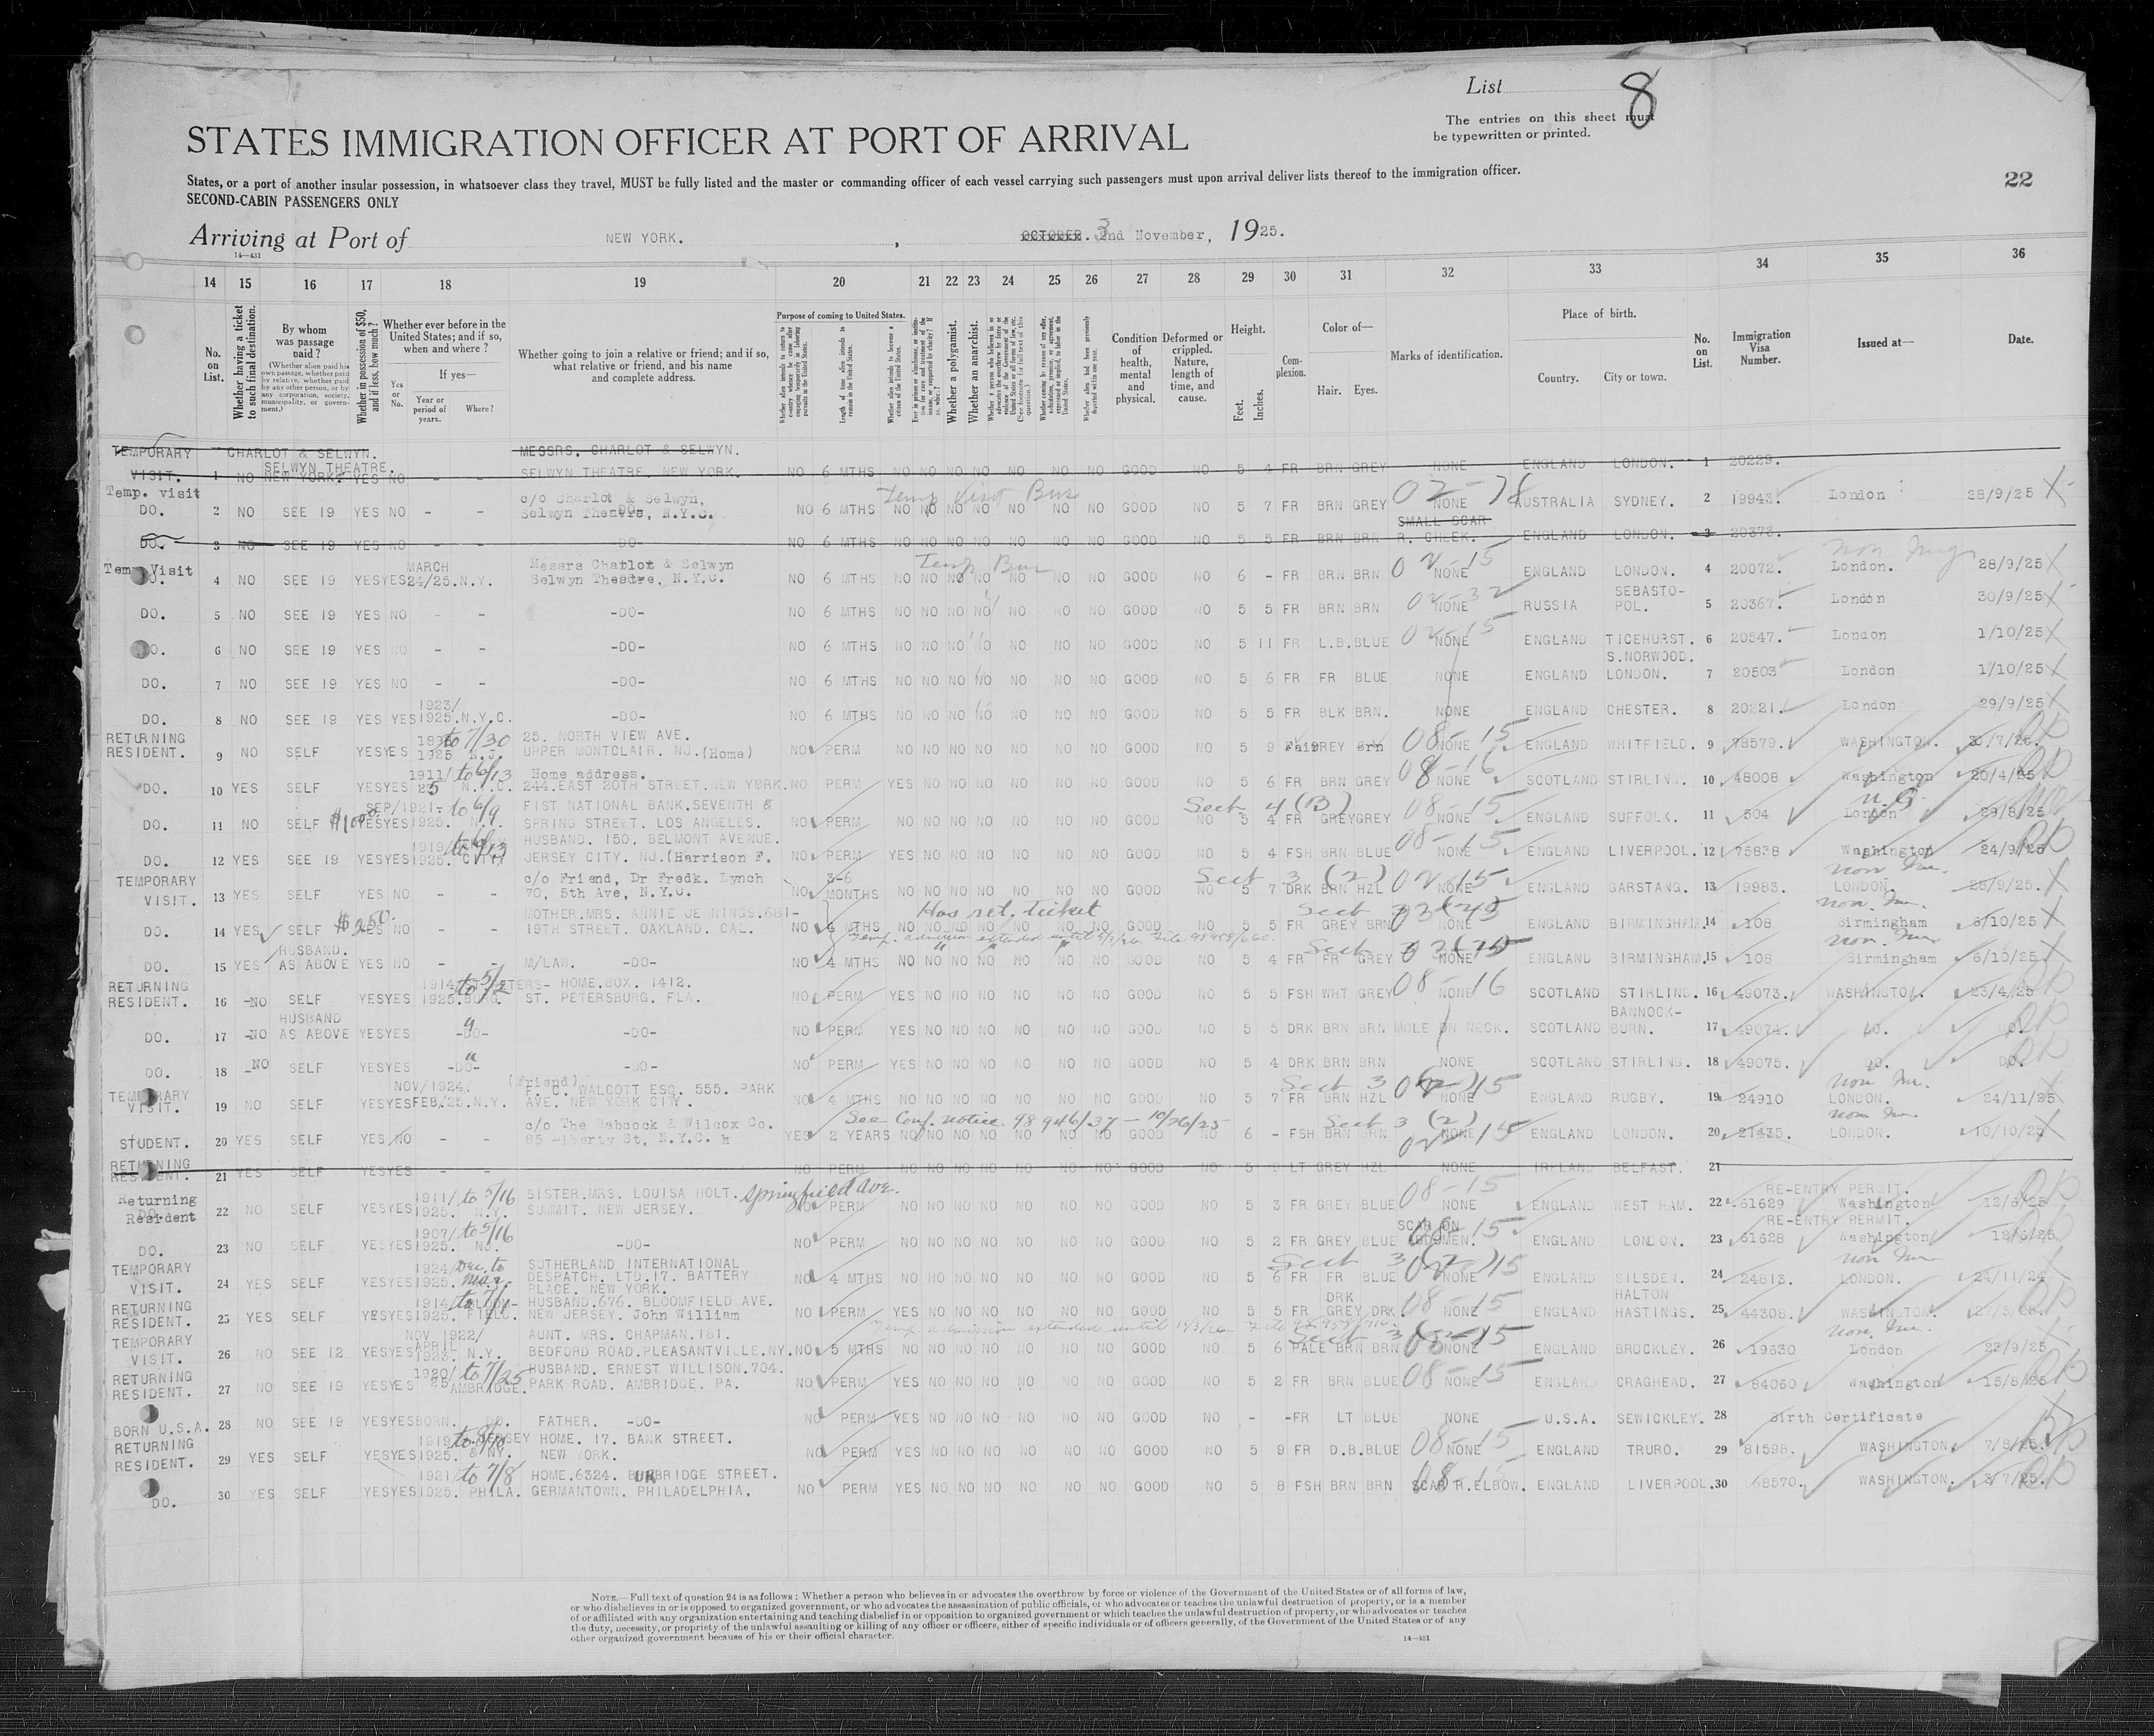 List 8
The entries on this sheet must
be typewritten or printed.
STATES IMMIGRATION OFFICER AT PORT OF ARRIVAL
States, or a port of another insular possession, in whatsoever class they travel, MUST be fully listed and the master or commanding officer of each vessel carrying such passengers must upon arrival deliver lists thereof to the immigration officer.
22
SECOND-CABIN PASSENGERS ONLY
Arriving at Port of NEW YORK. , OCTOBER. 3 2nd November, 1925.
14—431
14 15 16 17 18 19 20 21 22 23 24 25 26 27 28 29 30 31 32 33 34 35 36
No. on List.
Whether having a ticket to such final destination.
By whom was passage paid?
(Whether alien paid his own passage, whether paid by relative, whether paid by any other person, or by any corporation, society, municipality, or government.)
Whether in possession of $50, and if less, how much?
Whether ever before in the United States; and if so, when and where?
If yes—
Yes or No.
Year or period of years.
Where?
Whether going to join a relative or friend; and if so, what relative or friend, and his name and complete address.
Purpose of coming to United States.
Whether a polygamist.
Whether an anarchist.
Condition of health, mental and physical.
Deformed or crippled. Nature, length of time, and cause.
Height.
Feet. Inches.
Complexion.
Color of—
Hair. Eyes.
Marks of identification.
Place of birth.
Country. City or town.
No. on List.
Immigration Visa Number.
Issued at—
Date.
TEMPORARY CHARLOT & SELWYN. MESSRS. CHARLOT & SELWYN.
VISIT. 1 NO SELWYN THEATRE. NEW YORK. YES NO - - SELWYN THEATRE. NEW YORK. NO 6 MTHS NO NO NO NO NO NO GOOD NO 5 4 FR BRN GREY NONE ENGLAND LONDON. 1 20229.
Temp. visit c/o Charlot & Selwyn, Temp Visit Bus 02-78
DO. 2 NO SEE 19 YES NO - - Selwyn Theatre, N.Y.C. NO 6 MTHS NO NO NO NO NO NO GOOD NO 5 7 FR BRN GREY NONE AUSTRALIA SYDNEY. 2 19943. London 28/9/25
DO. 3 NO SEE 19 YES NO -DO- NO 6 MTHS NO NO NO NO NO NO GOOD NO 5 5 FR BRN BRN SMALL SCAR R. CHEEK. ENGLAND LONDON. 3 20373.
Temp Visit MARCH Messrs Charlot & Selwyn Temp Bus 02-15
DO. 4 NO SEE 19 YES YES 24/25. N.Y. Selwyn Theatre, N.Y.C. NO 6 MTHS NO NO NO NO NO NO GOOD NO 6 - FR BRN BRN NONE ENGLAND LONDON. 4 20072. London. 28/9/25
DO. 5 NO SEE 19 YES NO - - -DO- NO 6 MTHS NO NO NO NO NO NO GOOD NO 5 5 FR BRN BRN 02-32 NONE RUSSIA SEBASTO-POL. 5 20367. London 30/9/25
DO. 6 NO SEE 19 YES NO - - -DO- NO 6 MTHS NO NO NO NO NO NO GOOD NO 5 11 FR L.B. BLUE 02-15 NONE ENGLAND TICEHURST. 6 20547. London 1/10/25
DO. 7 NO SEE 19 YES NO - - -DO- NO 6 MTHS NO NO NO NO NO NO GOOD NO 5 6 FR FR BLUE NONE ENGLAND S.NORWOOD. LONDON. 7 20503 London 1/10/25
DO. 8 NO SEE 19 YES YES 1923/1925. N.Y.C. -DO- NO 6 MTHS NO NO NO NO NO NO GOOD NO 5 5 FR BLK BRN. NONE ENGLAND CHESTER. 8 20221. London 29/9/25
RETURNING to 7/30 25. NORTH VIEW AVE. 08-15
RESIDENT. 9 NO SELF YES YES 1925 N.J. UPPER MONTCLAIR. NJ.(Home) NO PERM NO NO NO NO NO NO GOOD NO 5 9 Fair GREY Brn NONE ENGLAND WHITFIELD. 9 78579. WASHINGTON.
1911/ to 6/13 Home address. 08-16
DO. 10 YES SELF YES YES 25 N.Y.C. 244.EAST 20TH STREET.NEW YORK. NO PERM YES NO NO NO NO NO GOOD NO 5 6 FR BRN GREY NONE SCOTLAND STIRLING. 10 48008 Washington 20/4/25
SEP/1921- to 6/9 FIST NATIONAL BANK.SEVENTH & Sect 4 (B) 08-15
DO. 11 NO SELF $1000 YES YES 1925. SPRING STREET. LOS ANGELES. NO PERM NO NO NO NO NO NO GOOD NO 5 4 FR GREY GREY NONE ENGLAND SUFFOLK. 11 504 London 29/8/25
1919/ to 6/13 HUSBAND. 150. BELMONT AVENUE. 08-15
DO. 12 YES SEE 19 YES YES 1925. JERSEY CITY. NJ.(Harrison F. NO PERM YES NO NO NO NO NO GOOD NO 5 4 FSH BRN BLUE NONE ENGLAND LIVERPOOL. 12 75838 Washington 24/9/25
TEMPORARY c/o Friend, Dr Fredk. Lynch 3-6 Sect 3 (2) 02-15 non Im.
VISIT. 13 YES SELF YES NO - - 70, 5th Ave, N.Y.C. NO MONTHS NO NO NO NO NO NO GOOD NO 5 7 DRK BRN HZL NONE ENGLAND GARSTANG. 13 19983. LONDON. 26/9/25.
$250. MOTHER.MRS. ANNIE JENNINGS.681- Has ret. ticket non. Im.
DO. 14 YES SELF YES NO - - 19TH STREET. OAKLAND. CAL. NO 4 MTHS NO NO NO NO NO NO GOOD NO 5 5 FR GREY BRN NONE ENGLAND BIRMINGHAM. 14 108 Birmingham 6/10/25
HUSBAND. non. Im
DO. 15 YES AS ABOVE YES NO - - M/LAW. -DO- NO 4 MTHS NO NO NO NO NO NO GOOD NO 5 4 FR FR GREY NONE ENGLAND BIRMINGHAM. 15 108 Birmingham 6/10/25
RETURNING 1914 to 5/2 HOME.BOX. 1412. 08-16
RESIDENT. 16 -NO SELF YES YES 1925. BURG. ST. PETERSBURG. FLA. NO PERM YES NO NO NO NO NO GOOD NO 5 5 FSH WHT GREY NONE SCOTLAND STIRLING. 16 49073. WASHINGTON. 23/4/25
HUSBAND BANNOCK-
DO. 17 -NO AS ABOVE YES YES -DO- -DO- NO PERM YES NO NO NO NO NO GOOD NO 5 5 DRK BRN BRN MOLE ON NECK. SCOTLAND BURN. 17 49074. DO. DO.
DO. 18 -NO SELF YES YES -DO- -DO- NO PERM YES NO NO NO NO NO GOOD NO 5 4 DRK BRN BRN NONE SCOTLAND STIRLING. 18 49075. DO. DO.
TEMPORARY NOV/1924. (Friend) F. C. WALCOTT ESQ. 555. PARK Sect 3 (2) non Im.
VISIT. 19 NO SELF YES YES FEB/25. N.Y. AVE. NEW YORK CITY. NO 4 MTHS NO NO NO NO NO NO GOOD NO 5 7 FR BRN HZL NONE ENGLAND RUGBY. 19 24910 LONDON. 24/11/25
c/o The Babcock & Wilcox Co. See Conf. notice 98946/37 — 10/26/25 Sect 3 (2) non Im
STUDENT. 20 YES SELF YES NO - - 85 Liberty St, N.Y.C. YES 2 YEARS NO NO NO NO NO NO GOOD NO 6 - FSH BRN BRN NONE ENGLAND LONDON. 20 21435. LONDON. 10/10/25
RETURNING
RESIDENT. 21 YES SELF YES YES - - NO PERM NO NO NO NO NO NO GOOD NO 5 9 LT GREY HZL NONE IRELAND BELFAST. 21
Returning Resident 1911/ to 5/16 SISTER.MRS. LOUISA HOLT. Springfield Ave. 08-15 RE-ENTRY PERMIT.
DO. 22 NO SELF YES YES 1925. N.Y. SUMMIT. NEW JERSEY. NO PERM NO NO NO NO NO NO GOOD NO 5 3 FR GREY BLUE NONE ENGLAND WEST HAM. 22 61629 Washington 12/6/25
1907/ to 5/16 SCAR ON RE-ENTRY PERMIT.
DO. 23 NO SELF YES YES 1925. NJ. -DO- NO PERM NO NO NO NO NO NO GOOD NO 5 2 FR GREY BLUE ABDOMEN. ENGLAND LONDON. 23 61628 Washington 12/6/25
TEMPORARY 1924/ Dec. to SUTHERLAND INTERNATIONAL Sect 3 (2) non Im
VISIT. 24 YES SELF YES YES 1925. Mar. DESPATCH. LTD.17. BATTERY PLACE. NEW YORK. NO 4 MTHS NO NO NO NO NO NO GOOD NO 5 6 FR FR BLUE NONE ENGLAND SILSDEN. 24 24813. LONDON. 24/11/24
RETURNING 1914/ to 7/1 HUSBAND.676. BLOOMFIELD AVE. DRK 08-15 HALTON
RESIDENT. 25 YES SELF YES YES 1925. FIELD. NEW JERSEY. John William NO PERM YES NO NO NO NO NO GOOD NO 5 5 FR GREY DRK. NONE ENGLAND HASTINGS. 25 44308. WASHINGTON.
TEMPORARY NOV 1922/ AUNT. MRS. CHAPMAN.181. Temp. admission extended until non. Im.
VISIT. 26 NO SEE 12 YES YES APRIL 1923. N.Y. BEDFORD ROAD.PLEASANTVILLE.NY. NO 5 MTHS NO NO NO NO NO NO GOOD NO 5 6 PALE BRN BRN NONE ENGLAND BROCKLEY. 26 19630 London 23/9/25
RETURNING 1920/ to 7/25 HUSBAND. ERNEST WILLISON.704. 08-15
RESIDENT. 27 NO SEE 19 YES YES 25 AMBRIDGE. PARK ROAD. AMBRIDGE. PA. NO PERM YES NO NO NO NO NO GOOD NO 5 2 FR BRN BLUE NONE ENGLAND CRAGHEAD. 27 84060 Washington 15/8/25
BORN U.S.A. 28 NO SEE 19 YES YES BORN. DO. FATHER. -DO- NO PERM YES NO NO NO NO NO GOOD NO - - FR LT BLUE NONE U.S.A. SEWICKLEY. 28 Birth Certificate
RETURNING 1919 JERSEY HOME. 17. BANK STREET. 08-15
RESIDENT. 29 YES SELF YES YES 1925. & NY. NEW YORK. NO PERM YES NO NO NO NO NO GOOD NO 5 9 FR D.B. BLUE NONE ENGLAND TRURO. 29 81598. WASHINGTON. 7/8/25.
1921/ to 7/8 HOME.6324. BURBRIDGE STREET. 08-15
DO. 30 YES SELF YES YES 1925. PHILA. GERMANTOWN. PHILADELPHIA. NO PERM YES NO NO NO NO NO GOOD NO 5 8 FSH BRN BRN SCAR R.ELBOW. ENGLAND LIVERPOOL. 30 68570. WASHINGTON. 3/7/25.
NOTE.—Full text of question 24 is as follows: Whether a person who believes in or advocates the overthrow by force or violence of the Government of the United States or of all forms of law,
or who disbelieves in or is opposed to organized government, or who advocates the assassination of public officials, or who advocates or teaches the unlawful destruction of property, or is a member
of or affiliated with any organization entertaining and teaching disbelief in or opposition to organized government or which teaches the unlawful destruction of property, or who advocates or teaches
the duty, necessity, or propriety of the unlawful assaulting or killing of any officer or officers, either of specific individuals or of officers generally, of the Government of the United States or of any
other organized government because of his or their official character.
14—431